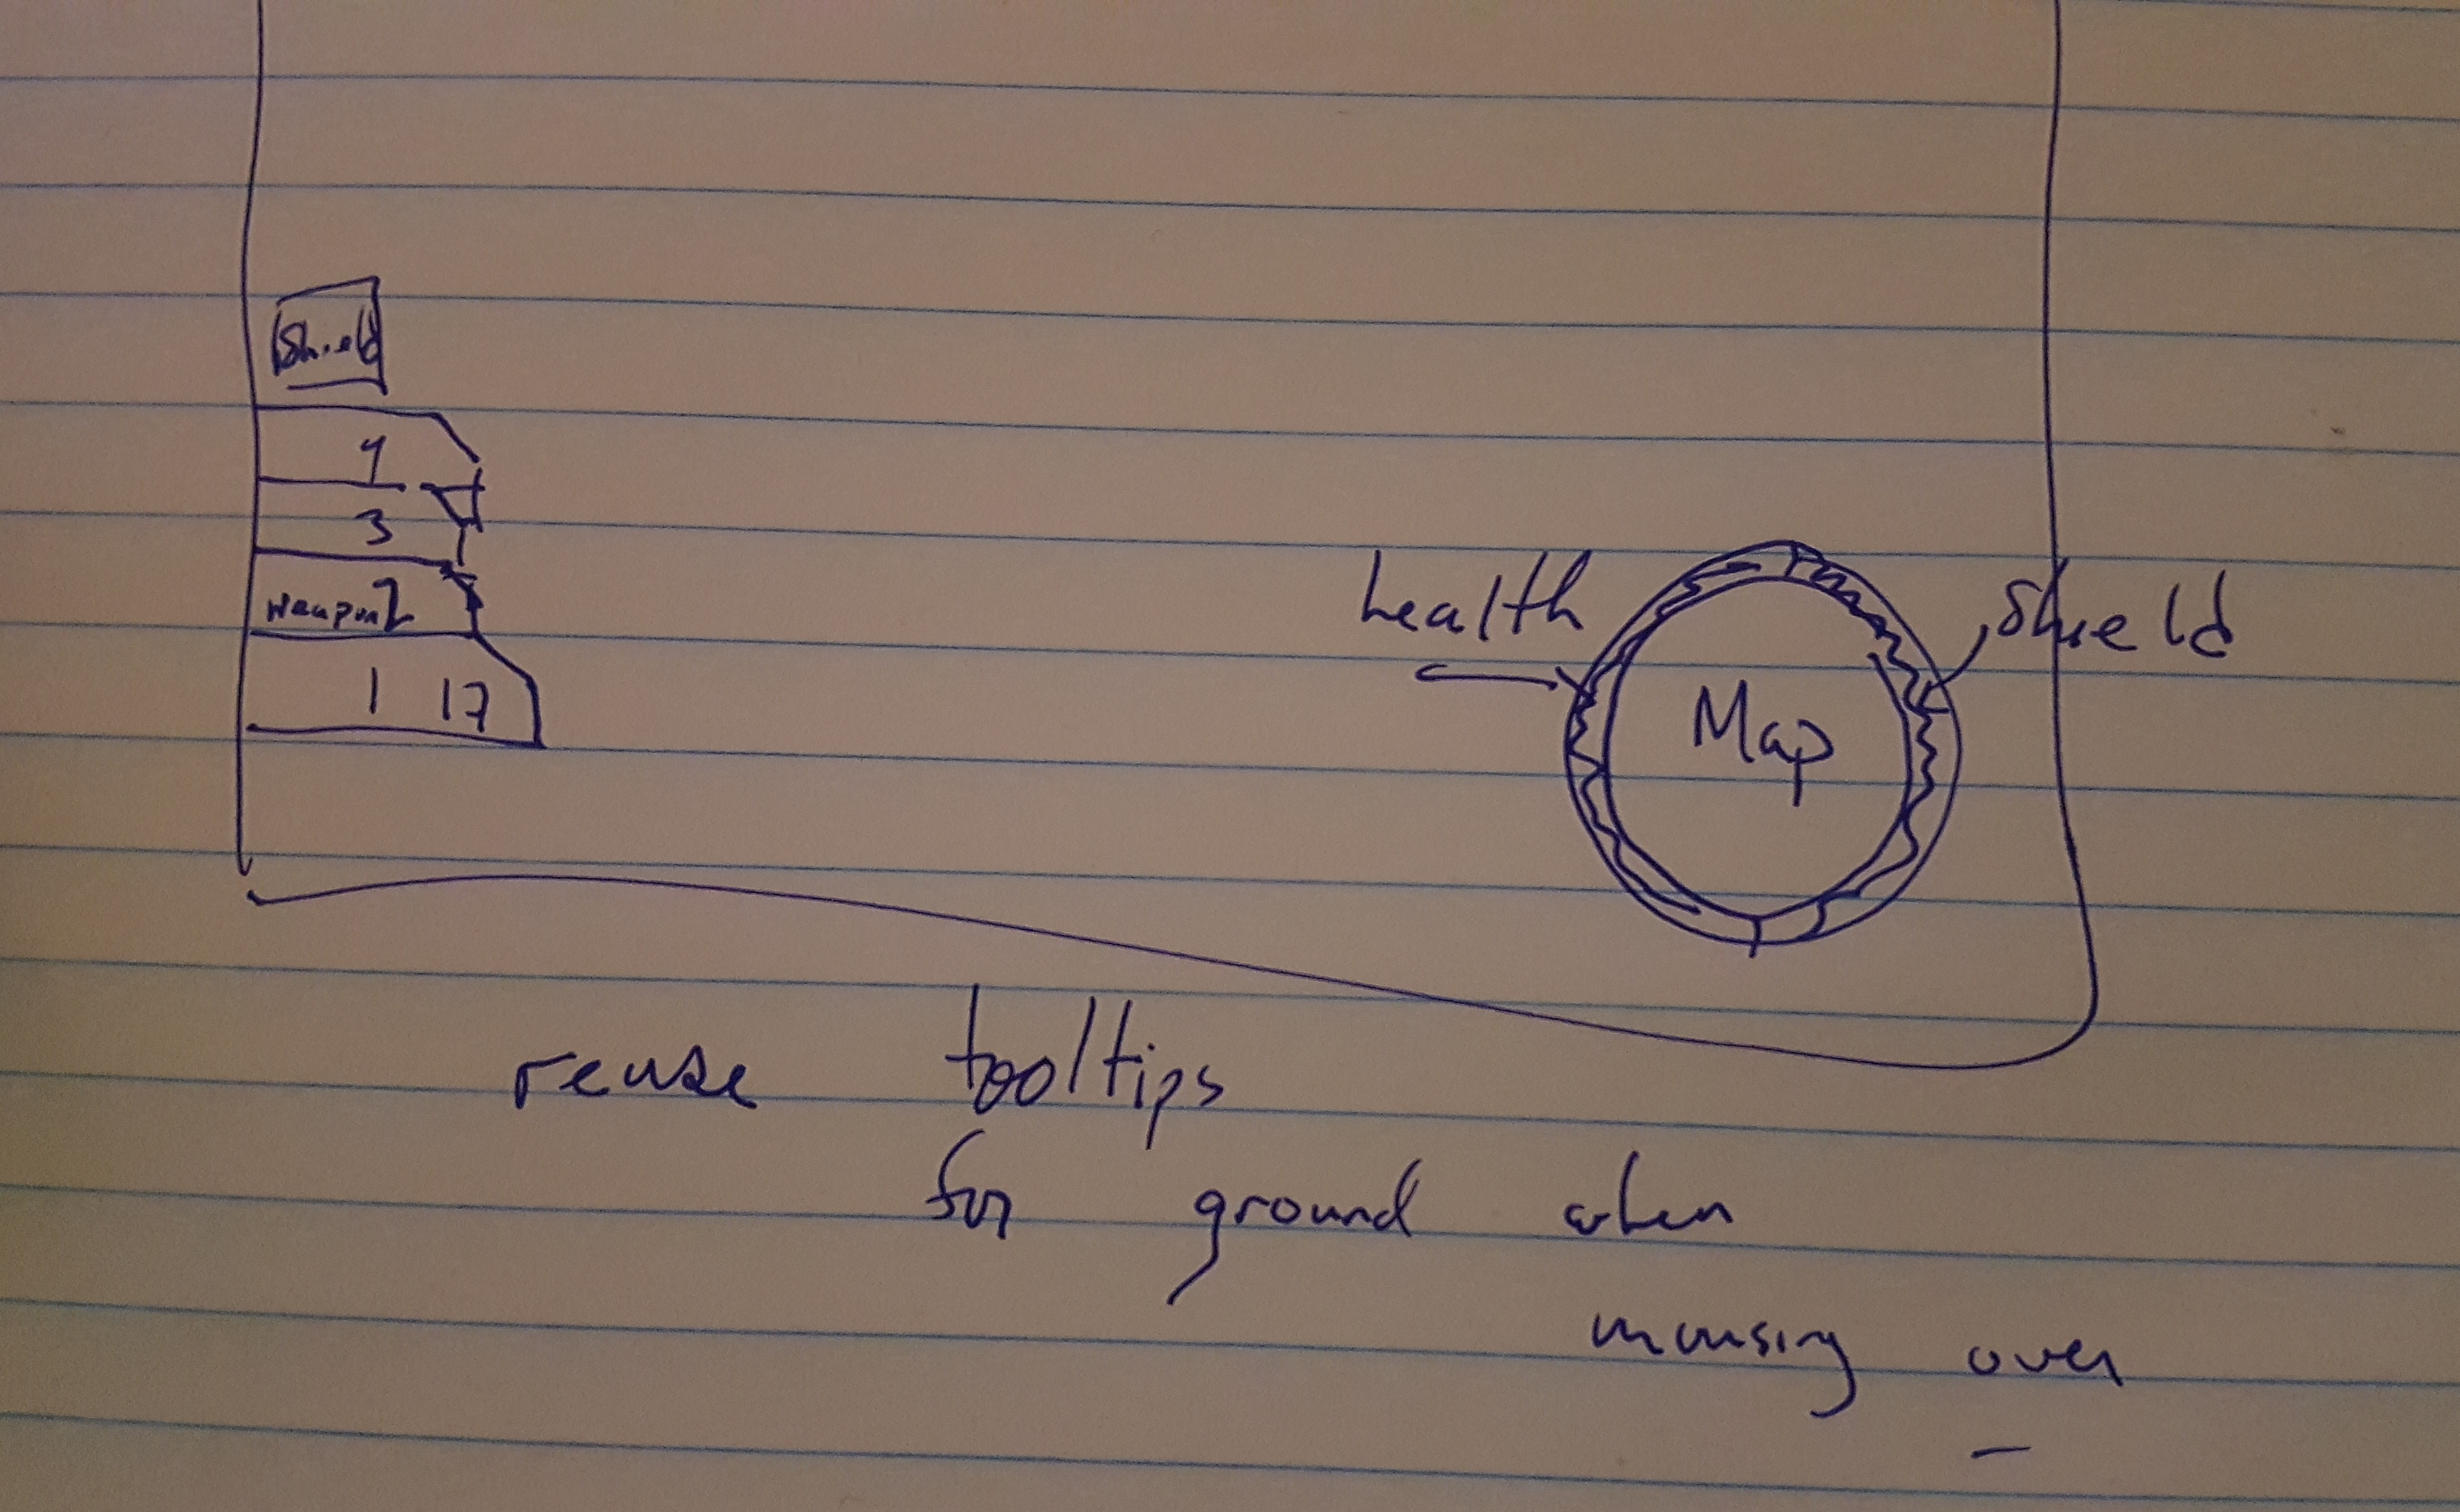 Shield
4
3
weapon 2
1 17
health
Shield
Map
reuse tooltips
for ground when
mousing over